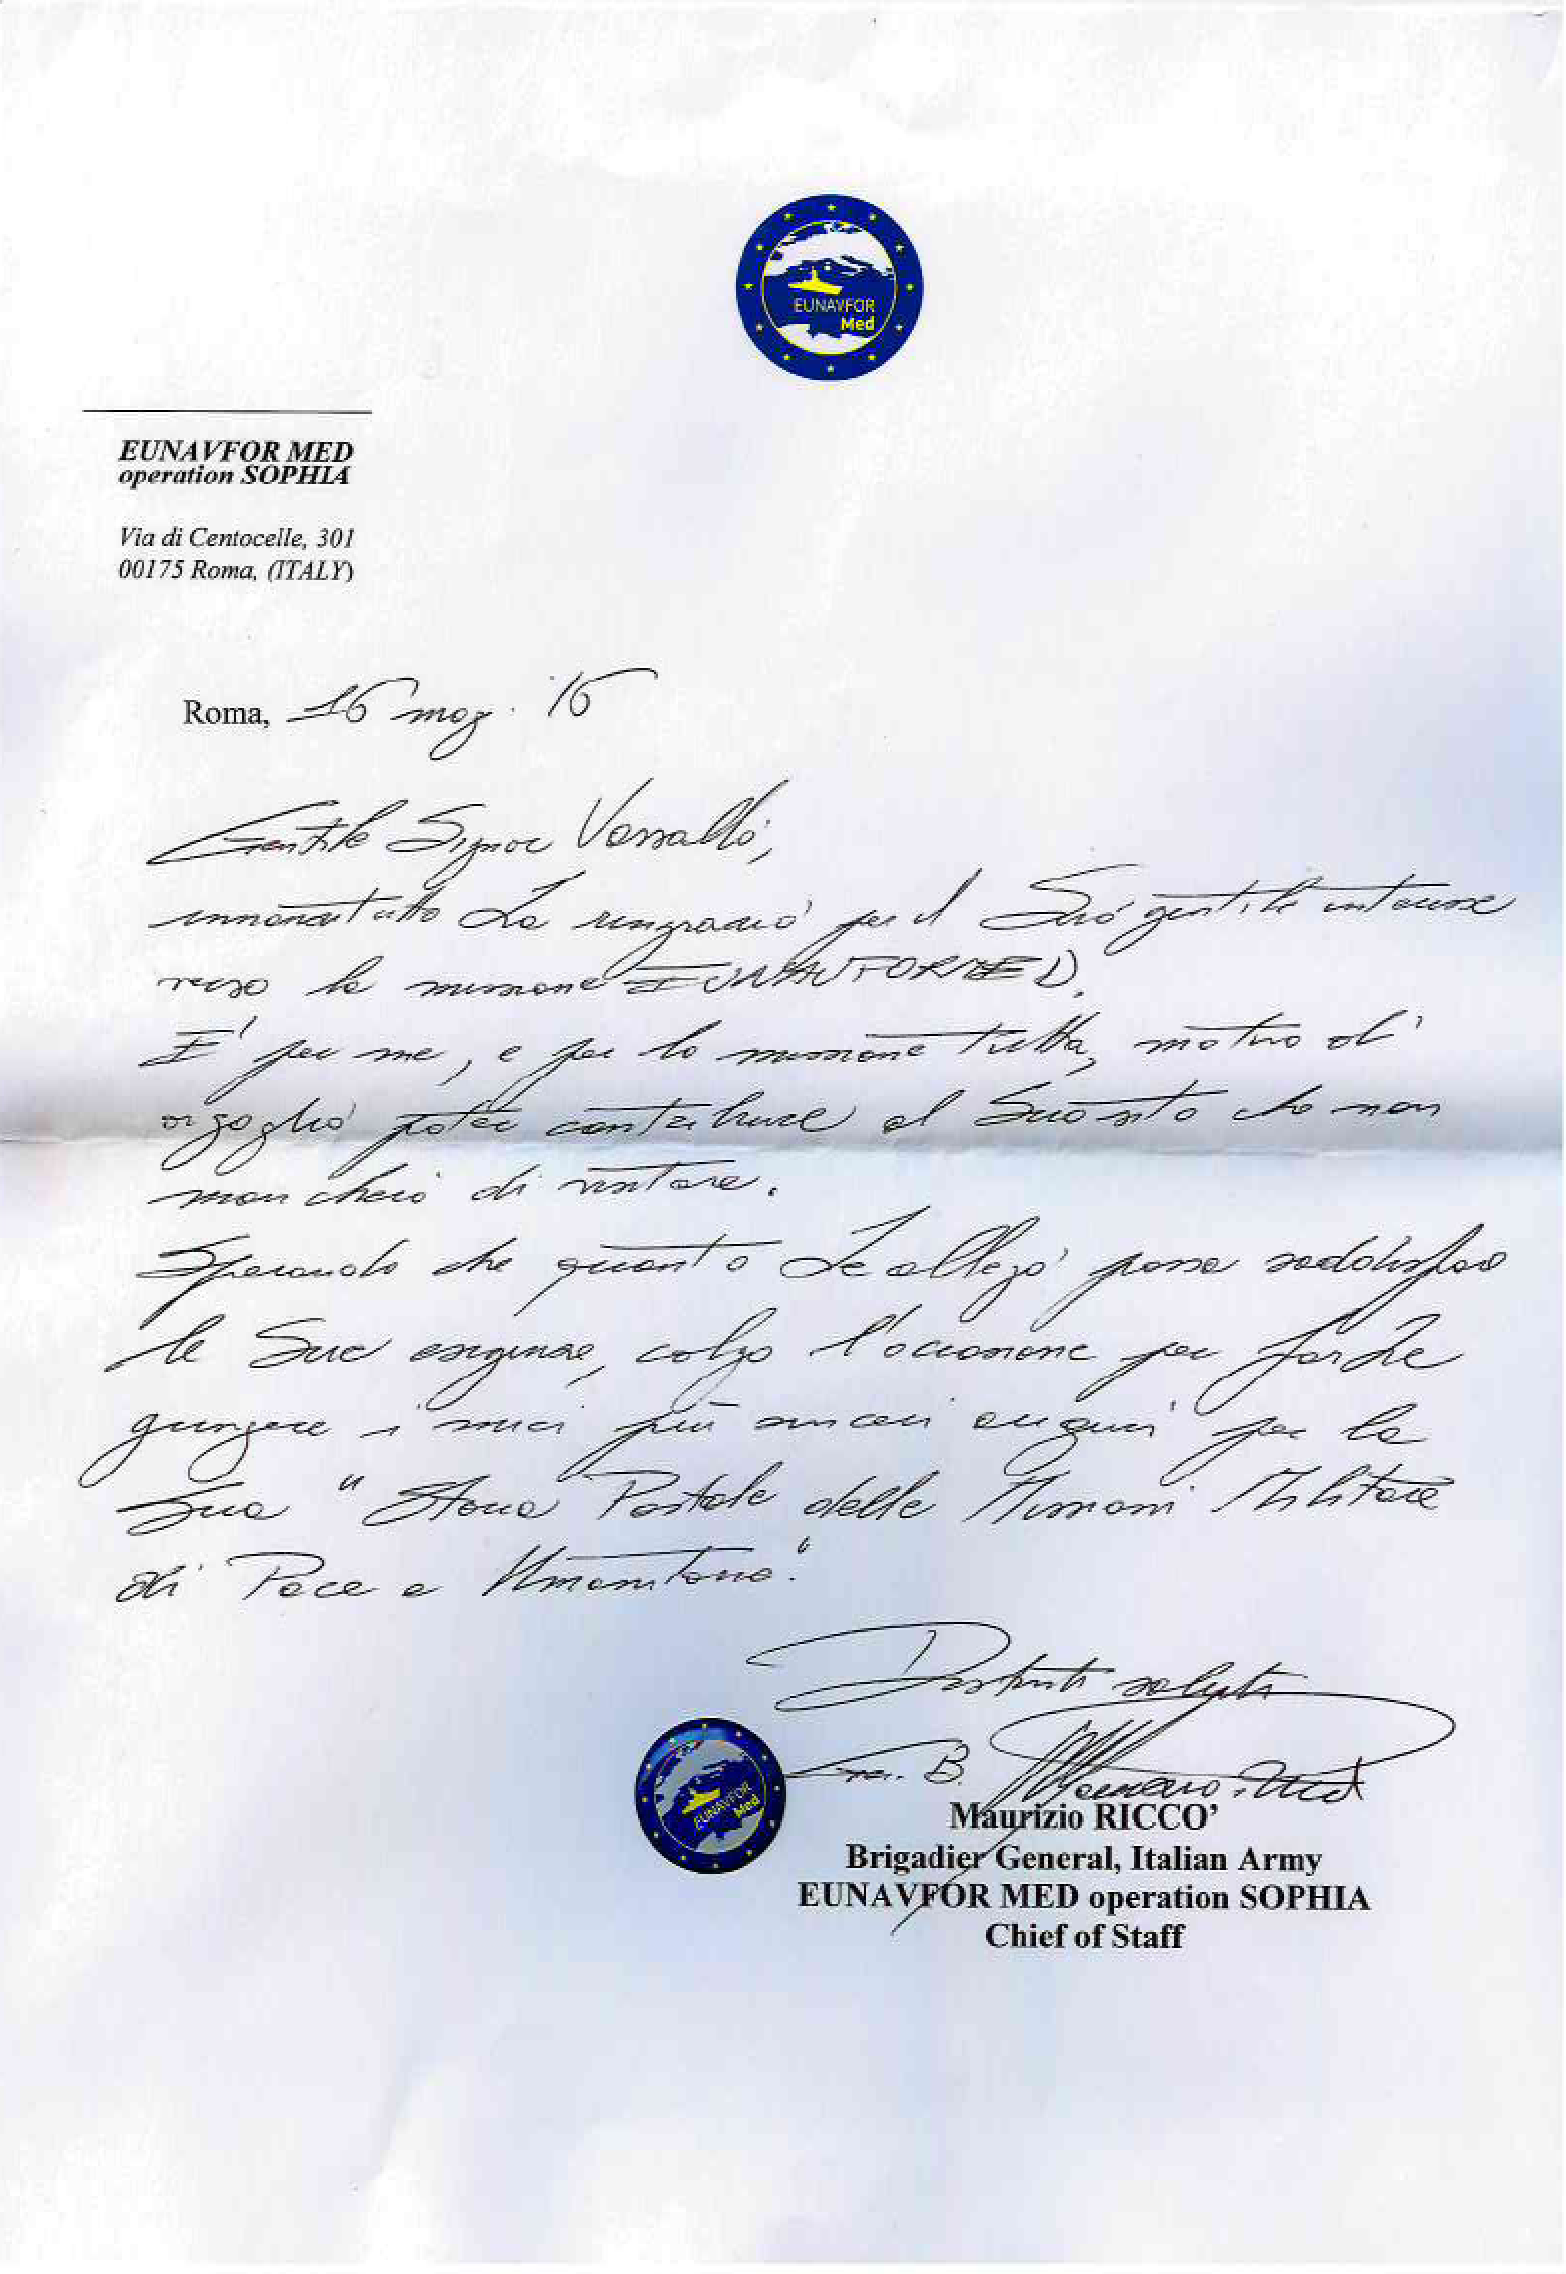 EUNAVFOR
Med
EUNAVFOR MED
operation SOPHIA
Via di Centocelle, 301
00175 Roma, (ITALY)
Roma, 16 mag. '16
Gentile Signor Vassallo,
innanzitutto La ringrazio per il Suo gentile interesse
verso la missione EUNAVFORMED.
E' per me, e per la missione tutta, motivo di
orgoglio poter contribuire al Suo sito che non
mancherò di visitare.
Sperando che quanto Le allego possa soddisfare
le Sue esigenze, colgo l'occasione per farLe
giungere i miei più sinceri auguri per la
Sua "Storia Postale delle Missioni Militare
di Pace e Umanitarie."
Distinti saluti
Gen. B. Maurizio Riccò
EUNAVFOR
Med
Maurizio RICCO'
Brigadier General, Italian Army
EUNAVFOR MED operation SOPHIA
Chief of Staff